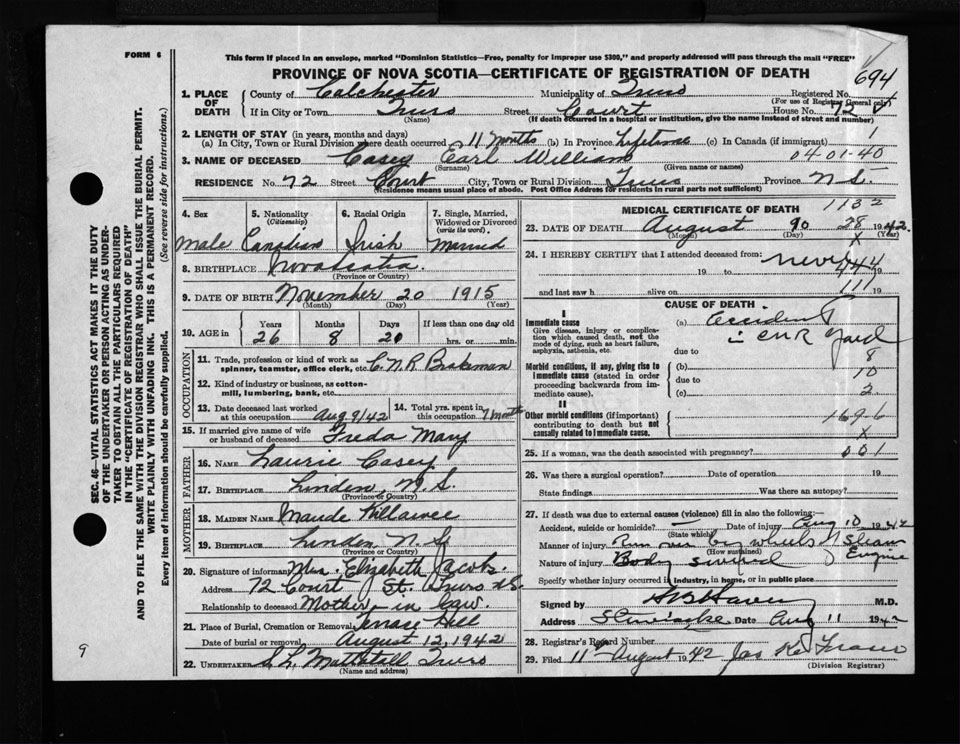 FORM 6
This form if placed in an envelope, marked "Dominion Statistics—Free, penalty for improper use $300," and properly addressed will pass through the mail "FREE"
PROVINCE OF NOVA SCOTIA—CERTIFICATE OF REGISTRATION OF DEATH
694
1. PLACE OF DEATH
County of Colchester Municipality of Truro Registered No.
(For use of Registrar General only)
If in City or Town Truro Street Court House No. 72
(Name) (If death occurred in a hospital or institution, give the name instead of street and number)
2. LENGTH OF STAY (in years, months and days)
(a) In City, Town or Rural Division where death occurred 11 months (b) In Province Lifetime (c) In Canada (if immigrant) 1
3. NAME OF DECEASED Casey Earl William 04-01-40
(Surname) (Given name or names)
RESIDENCE No. 72 Street Court City, Town or Rural Division Truro Province N.S.
(Residence means usual place of abode. Post Office Address for residents in rural parts not sufficient)
4. Sex Male
5. Nationality (Citizenship) Canadian
6. Racial Origin Irish
7. Single, Married, Widowed or Divorced (write the word) Married
8. BIRTHPLACE Nova Scotia
(Province or Country)
9. DATE OF BIRTH November 20 1915
(Month) (Day) (Year)
10. AGE in Years Months Days If less than one day old
26 8 20 hrs. or min.
OCCUPATION
11. Trade, profession or kind of work as spinner, teamster, office clerk, etc. C.N.R. Brakeman
12. Kind of industry or business, as cotton-mill, lumbering, bank, etc.
13. Date deceased last worked at this occupation Aug 9/42
14. Total yrs. spent in this occupation 7 months
15. If married give name of wife or husband of deceased Freda Mary
FATHER
16. NAME Laurie Casey
17. BIRTHPLACE Linden, N.S.
(Province or Country)
MOTHER
18. MAIDEN NAME Maude
19. BIRTHPLACE Linden N.S.
(Province or Country)
20. Signature of informant Mrs. Elizabeth Jacobs.
Address 72 Court St. Truro N.S.
Relationship to deceased Mother-in law.
21. Place of Burial, Cremation or Removal Terrace Hill
Date of burial or removal August 12, 1942
22. UNDERTAKER Truro
(Name and address)
MEDICAL CERTIFICATE OF DEATH 1132
23. DATE OF DEATH August 10 28 1942.
(Month) (Day) (Year)
X
24. I HEREBY CERTIFY that I attended deceased from never
19 to 444 19
and last saw h alive on 111 19
CAUSE OF DEATH
I
Immediate cause
Give disease, injury or complication which caused death, not the mode of dying, such as heart failure, asphyxia, asthenia, etc.
(a) Accident
in CNR Yard
due to 8
Morbid conditions, if any, giving rise to immediate cause (stated in order proceeding backwards from immediate cause).
(b) 10
due to
(c) 2
II
Other morbid conditions (if important) contributing to death but not causally related to immediate cause.
169-6
X
25. If a woman, was the death associated with pregnancy? 001
26. Was there a surgical operation? Date of operation 19
State findings Was there an autopsy?
27. If death was due to external causes (violence) fill in also the following:
Accident, suicide or homicide? — Date of injury Aug 10 1942
(State which)
Manner of injury Run over by wheels of
(How sustained) Engine
Nature of injury Body
Specify whether injury occurred in industry, in home, or in public place
Signed by M.D.
Address Stewiacke Date Aug 11 1942
28. Registrar's Record Number
29. Filed 11 August 1942 Jas
(Division Registrar)
SEC. 46—VITAL STATISTICS ACT MAKES IT THE DUTY
OF THE UNDERTAKER OR PERSON ACTING AS UNDER-
TAKER TO OBTAIN ALL THE PARTICULARS REQUIRED
IN THE "CERTIFICATE OF REGISTRATION OF DEATH"
AND TO FILE THE SAME WITH THE DIVISION REGISTRAR WHO SHALL ISSUE THE BURIAL PERMIT.
WRITE PLAINLY WITH UNFADING INK. THIS IS A PERMANENT RECORD.
Every item of information should be carefully supplied. (See reverse side for instructions.)
9